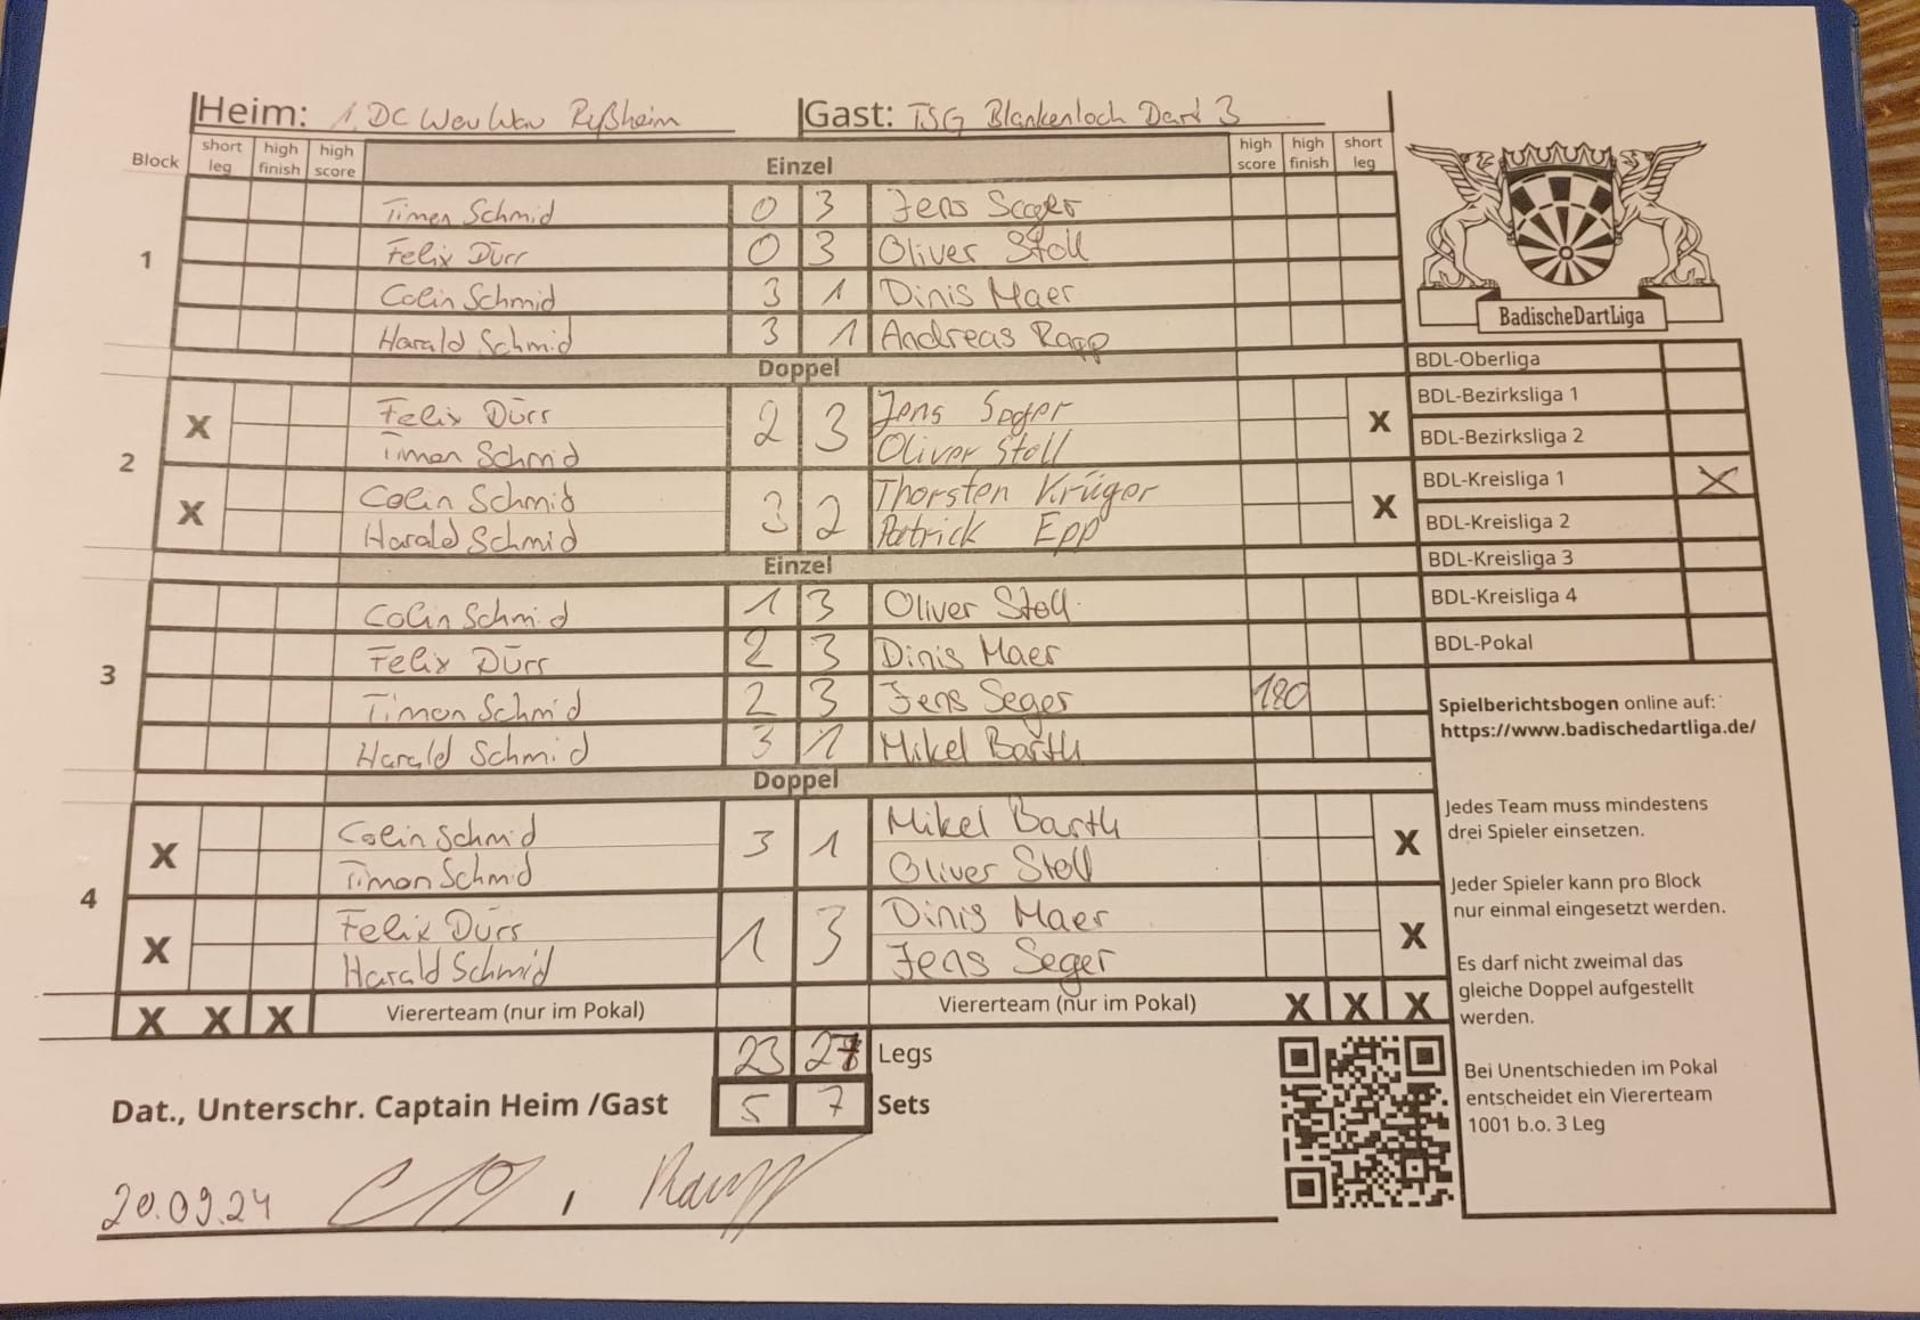 Heim: 1. DC WauWau Rußheim Gast: TSG Blankenloch Dart 3
Block short leg high finish high score Einzel high score high finish short leg
1
Timon Schmid 0 3 Jens Seger
Felix Dürr 0 3 Oliver Stoll
Colin Schmid 3 1 Dinis Maer
Harald Schmid 3 1 Andreas Rapp
Doppel
2
X Felix Dürr 2 3 Jens Seger X
Timon Schmid Oliver Stoll
X Colin Schmid 3 2 Thorsten Krüger X
Harald Schmid Patrick Epp
Einzel
3
Colin Schmid 1 3 Oliver Stoll
Felix Dürr 2 3 Dinis Maer
Timon Schmid 2 3 Jens Seger 180
Harald Schmid 3 1 Mikel Barth
Doppel
4
X Colin Schmid 3 1 Mikel Barth X
Timon Schmid Oliver Stoll
X Felix Dürr 1 3 Dinis Maer X
Harald Schmid Jens Seger
X X X Viererteam (nur im Pokal) Viererteam (nur im Pokal) X X X
23 27 Legs
Dat., Unterschr. Captain Heim /Gast 5 7 Sets
20.09.24 , Rapp
BadischeDartLiga
BDL-Oberliga
BDL-Bezirksliga 1
BDL-Bezirksliga 2
BDL-Kreisliga 1 X
BDL-Kreisliga 2
BDL-Kreisliga 3
BDL-Kreisliga 4
BDL-Pokal
Spielberichtsbogen online auf:
https://www.badischedartliga.de/
Jedes Team muss mindestens
drei Spieler einsetzen.
Jeder Spieler kann pro Block
nur einmal eingesetzt werden.
Es darf nicht zweimal das
gleiche Doppel aufgestellt
werden.
Bei Unentschieden im Pokal
entscheidet ein Viererteam
1001 b.o. 3 Leg